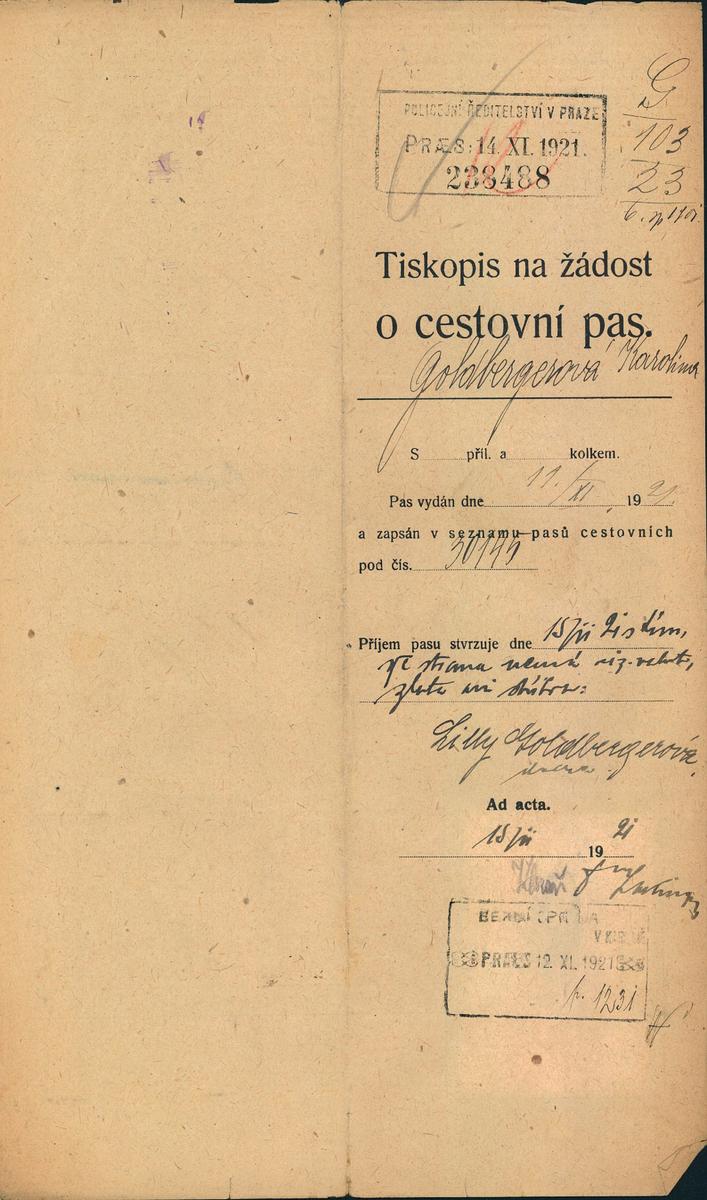 POLICEJNÍ ŘEDITELSTVÍ V PRAZE
PRÆS: 14. XI. 1921.
238488
G
103
23
Tiskopis na žádost
o cestovní pas.
Goldbergerová Karolina
S příl. a kolkem.
Pas vydán dne 11./XI 1921.
a zapsán v seznamu pasů cestovních
pod čís. 30145
Příjem pasu stvrzuje dne 15/ii 21 s tím,
že strana nemá
zlata ani stříbra:
Lilly Goldbergerová
Ad acta.
15/ii 1921
BERNÍ SPRÁVA
V
PRAES 12. XI. 1921
1231